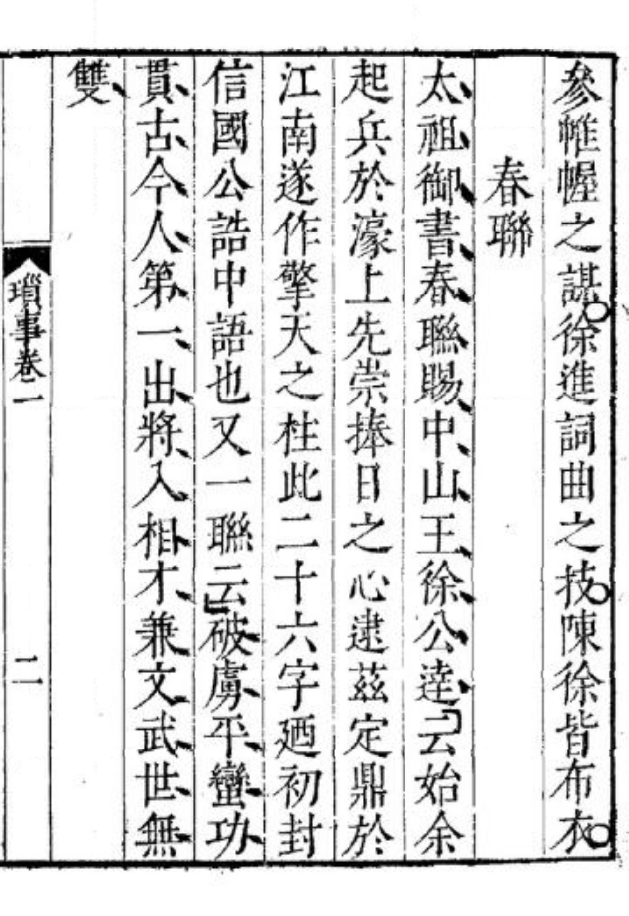 參帷幄之謀徐進詞曲之技陳徐皆布衣
春聯
太祖御書春聯賜中山王徐公逵云始余
起兵於濠上先崇捧日之心逮茲定鼎於
江南遂作擎天之柱此二十六字廼初封
信國公誥中語也又一聯云破虜平蠻功
貫古今人第一出將入相才兼文武世無
雙
瑣事卷一
二